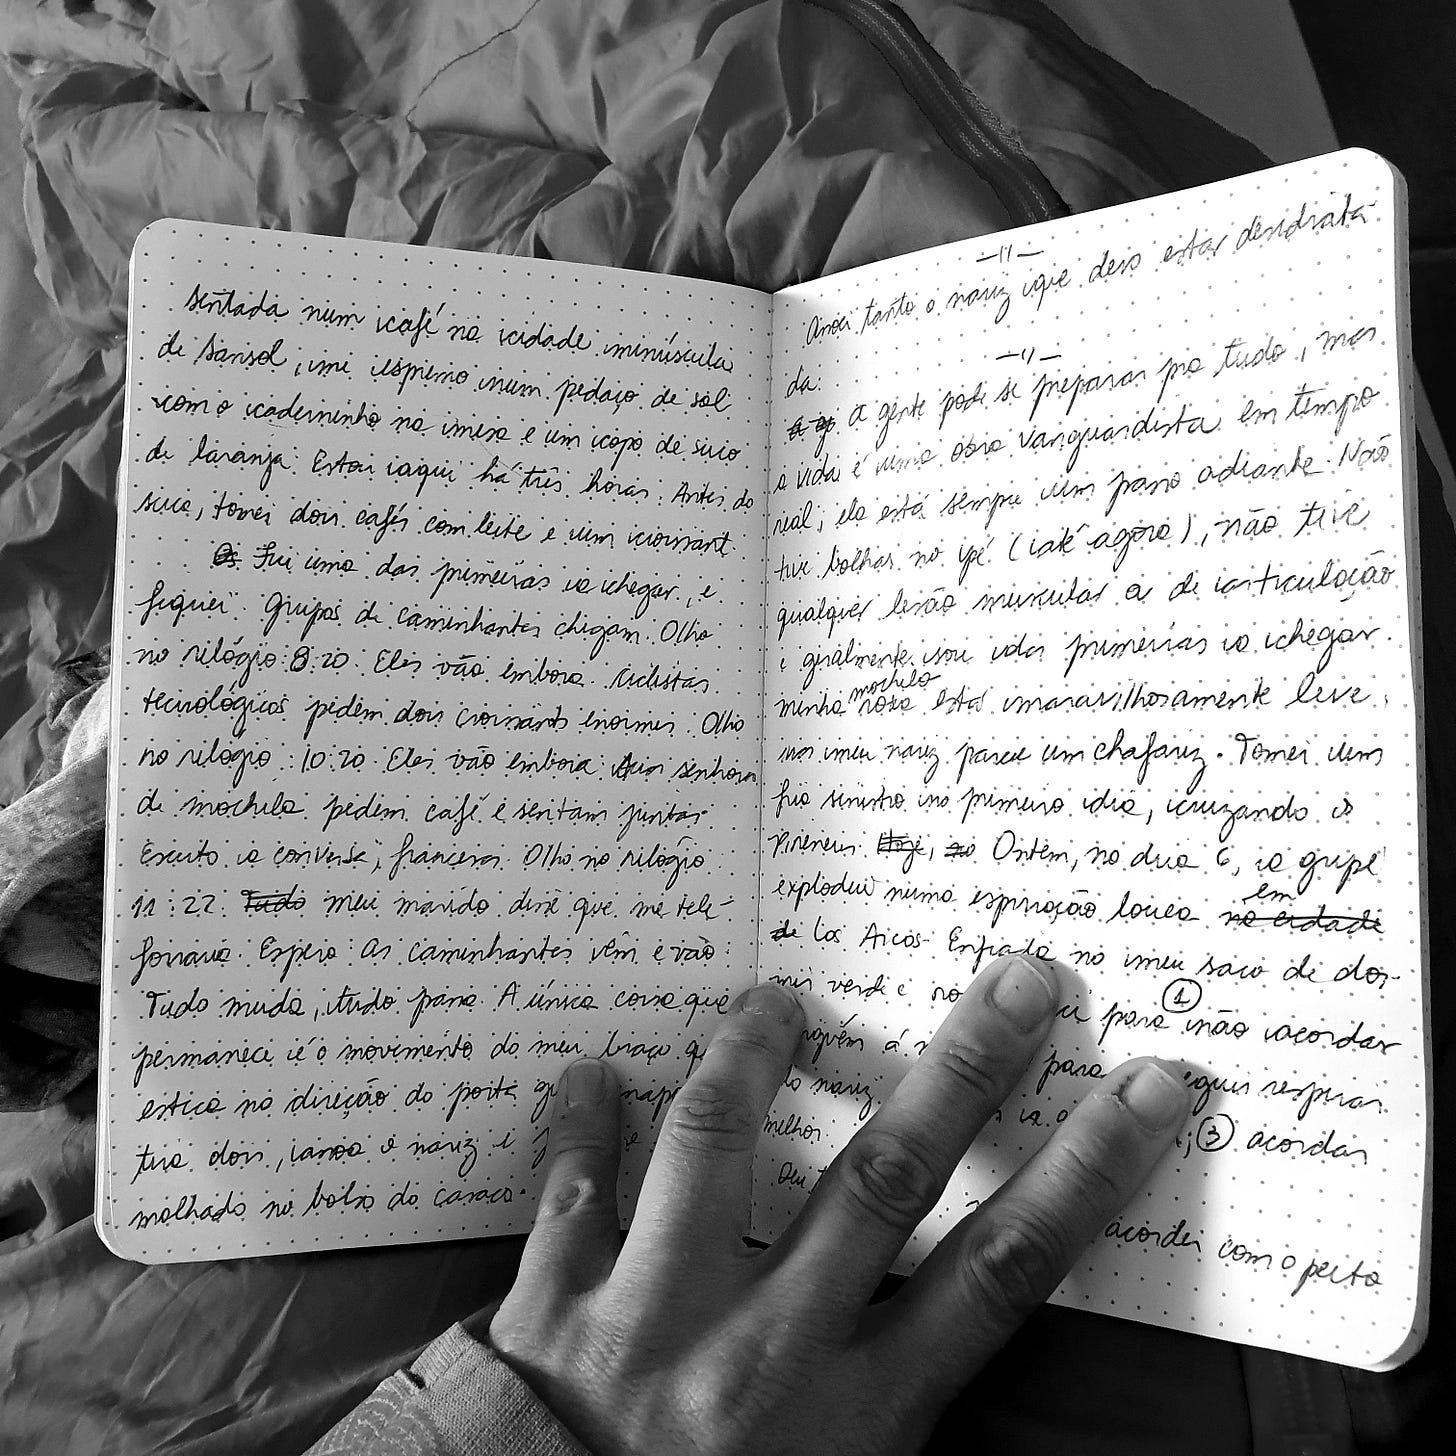 sentada num café na cidade minúscula
de Sansol, me espremo num pedaço de sol
com o caderninho na mesa e um copo de suco
de laranja. Estou aqui há três horas. Antes do
suco, tomei dois cafés com leite e um croissant.
Fui uma das primeiras a chegar, e
fiquei. Grupos de caminhantes chegam. Olho
no relógio: 8:20. Eles vão embora. Ciclistas
tecnológicos pedem dois croissants enormes. Olho
no relógio: 10:20. Eles vão embora. senhoras
de mochila pedem café e sentam juntas.
Escuto a conversa, francesas. Olho no relógio
11:22. Tudo meu marido disse que me tele-
fonava. Espero. As caminhantes vêm e vão.
Tudo muda, tudo passa. A única coisa que
permanece é o movimento do meu braço
estica na direção do porta
tira dois, assoa o nariz e
molhado no bolso do casaco.
—11—
Assoei tanto o nariz que devo estar desidrata-
da.
—11—
A gente pode se preparar pra tudo, mas
a vida é uma obra vanguardista em tempo
real, ela está sempre um passo adiante. Não
tive bolhas no pé (até agora), não tive
qualquer lesão muscular o de articulação
e geralmente sou das primeiras a chegar.
minha mochila está maravilhosamente leve,
mas meu nariz parece um chafariz. Tomei um
frio sinistro no primeiro dia, cruzando os
Pireneus. Hoje, Ontem, no dia 6, a gripe
explodiu numa espiração louca em na cidade
de Los Arcos. Enfiada no meu saco de dor-
mir verde e para ① não acordar
à para respirar
do nariz,
melhor. ; ③ acordar
acordei com o peito